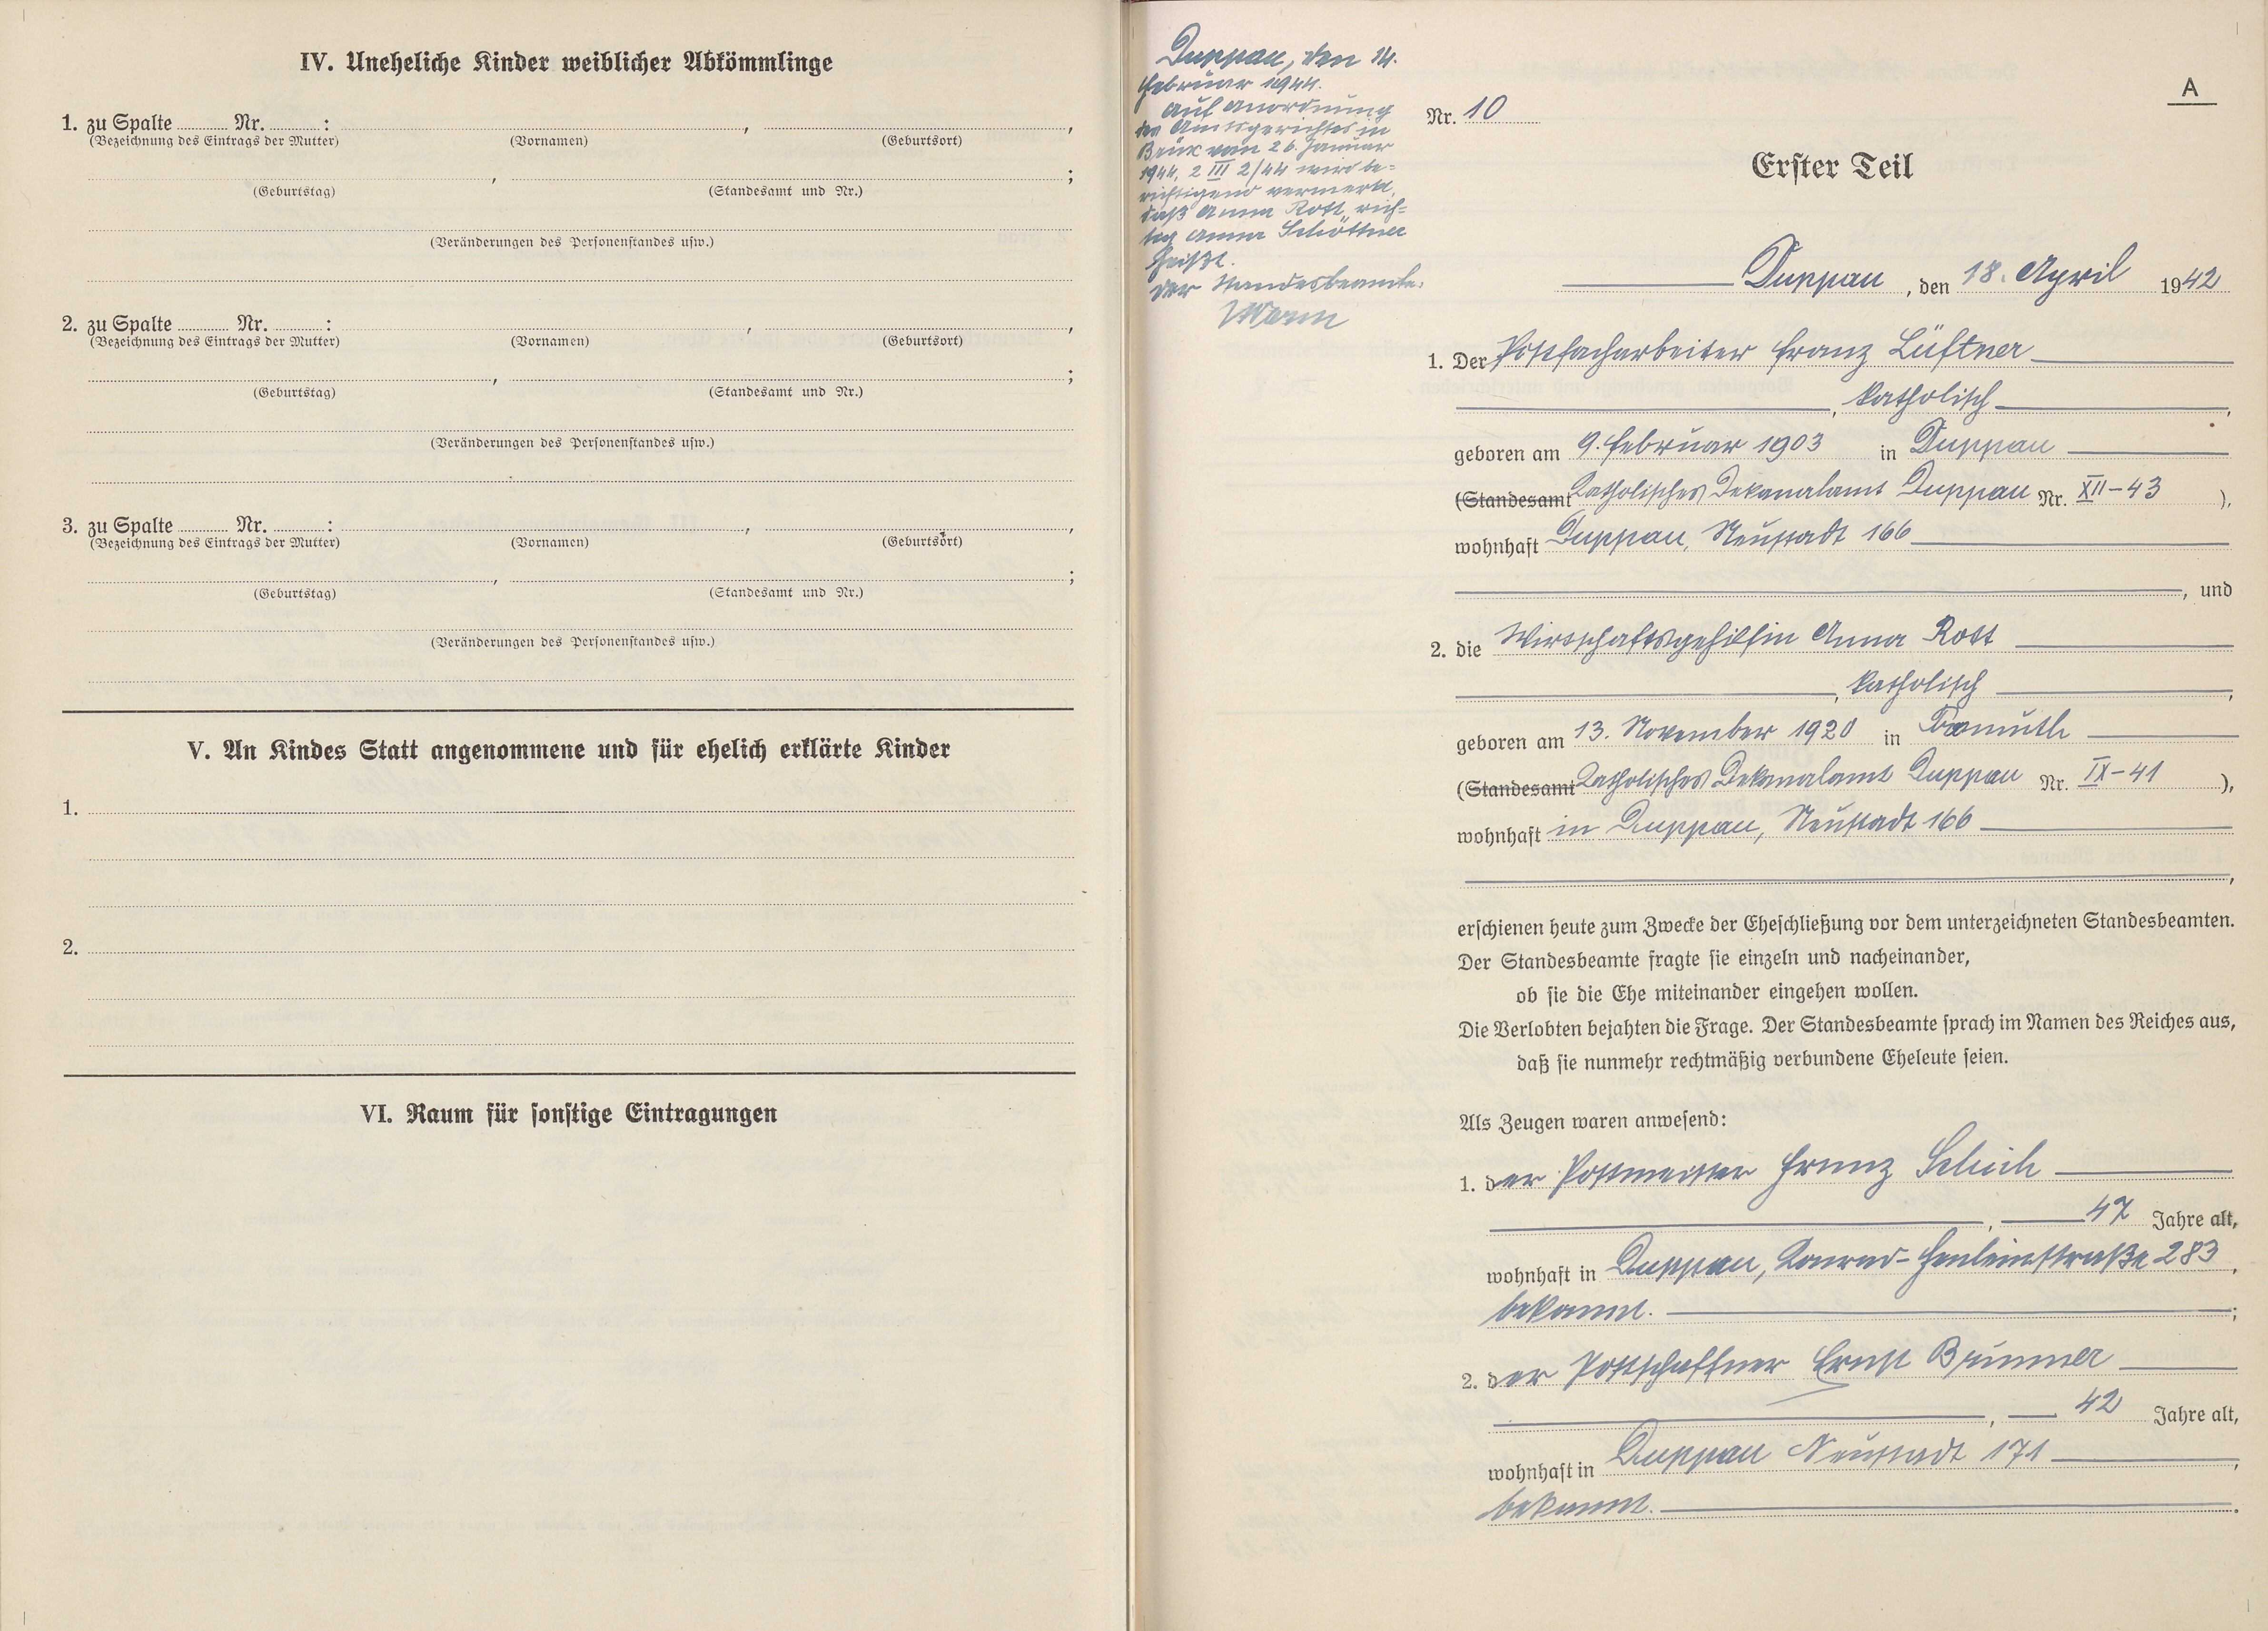 IV. Uneheliche Kinder weiblicher Abkömmlinge
1. zu Spalte ........ Nr. ........ : , ,
(Bezeichnung des Eintrags der Mutter) (Vornamen) (Geburtsort)
, ;
(Geburtstag) (Standesamt und Nr.)
(Veränderungen des Personenstandes usw.)
2. zu Spalte ........ Nr. ........ : , ,
(Bezeichnung des Eintrags der Mutter) (Vornamen) (Geburtsort)
, ;
(Geburtstag) (Standesamt und Nr.)
(Veränderungen des Personenstandes usw.)
3. zu Spalte ........ Nr. ........ : , ,
(Bezeichnung des Eintrags der Mutter) (Vornamen) (Geburtsort)
, ;
(Geburtstag) (Standesamt und Nr.)
(Veränderungen des Personenstandes usw.)
V. An Kindes Statt angenommene und für ehelich erklärte Kinder
1.
2.
VI. Raum für sonstige Eintragungen
Duppau, den 14.
Februar 1944.
Auf Anordnung
des Amtsgerichtes in
Brüx vom 26. Januar
1944, 2 III 2/44 wird be=
richtigend vermerkt,
daß Anna Rott rich=
tig Anna Schöttner
heißt.
Der Standesbeamte.
A
Nr. 10
Erster Teil
Duppau, den 18. April 1942
1. Der Postfacharbeiter Franz Lüftner
, katholisch,
geboren am 9. Februar 1903 in Duppau
(Standesamt Katholisches Dekanalamt Duppau Nr. XII-43 ),
wohnhaft Duppau, Neustadt 166
, und
2. die Wirtschaftsgehilfin Anna Rott
, katholisch,
geboren am 13. November 1920 in
(Standesamt Katholisches Dekanalamt Duppau Nr. IX-41 ),
wohnhaft in Duppau, Neustadt 166
,
erschienen heute zum Zwecke der Eheschließung vor dem unterzeichneten Standesbeamten.
Der Standesbeamte fragte sie einzeln und nacheinander,
ob sie die Ehe miteinander eingehen wollen.
Die Verlobten bejahten die Frage. Der Standesbeamte sprach im Namen des Reiches aus,
daß sie nunmehr rechtmäßig verbundene Eheleute seien.
Als Zeugen waren anwesend:
1. der Postmeister Franz
, 47 Jahre alt,
wohnhaft in Duppau, Konrad-Henleinstraße 283,
bekannt. ;
2. der Postschaffner Ernst Brunner
, 42 Jahre alt,
wohnhaft in Duppau Neustadt 171,
bekannt.